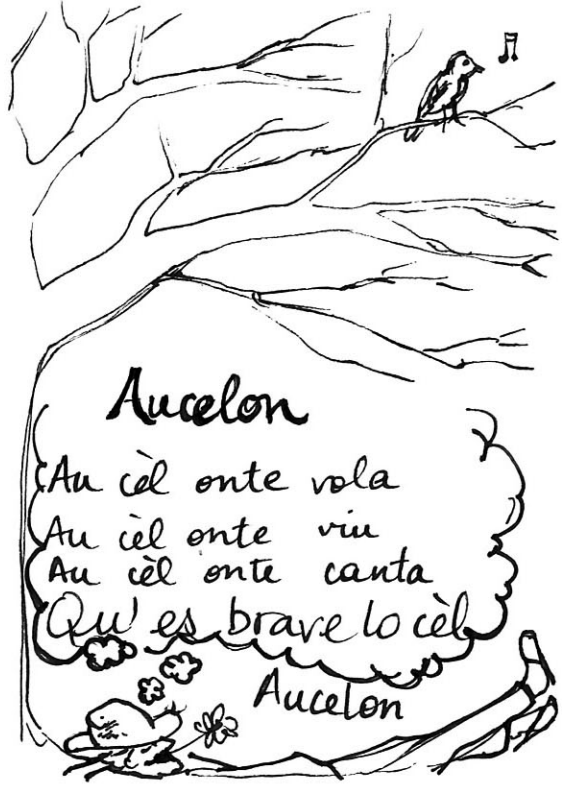 Aucelon
Au cèl onte vola
Au cèl onte viu
Au cèl onte canta
Qu'es brave lo cèl
Aucelon